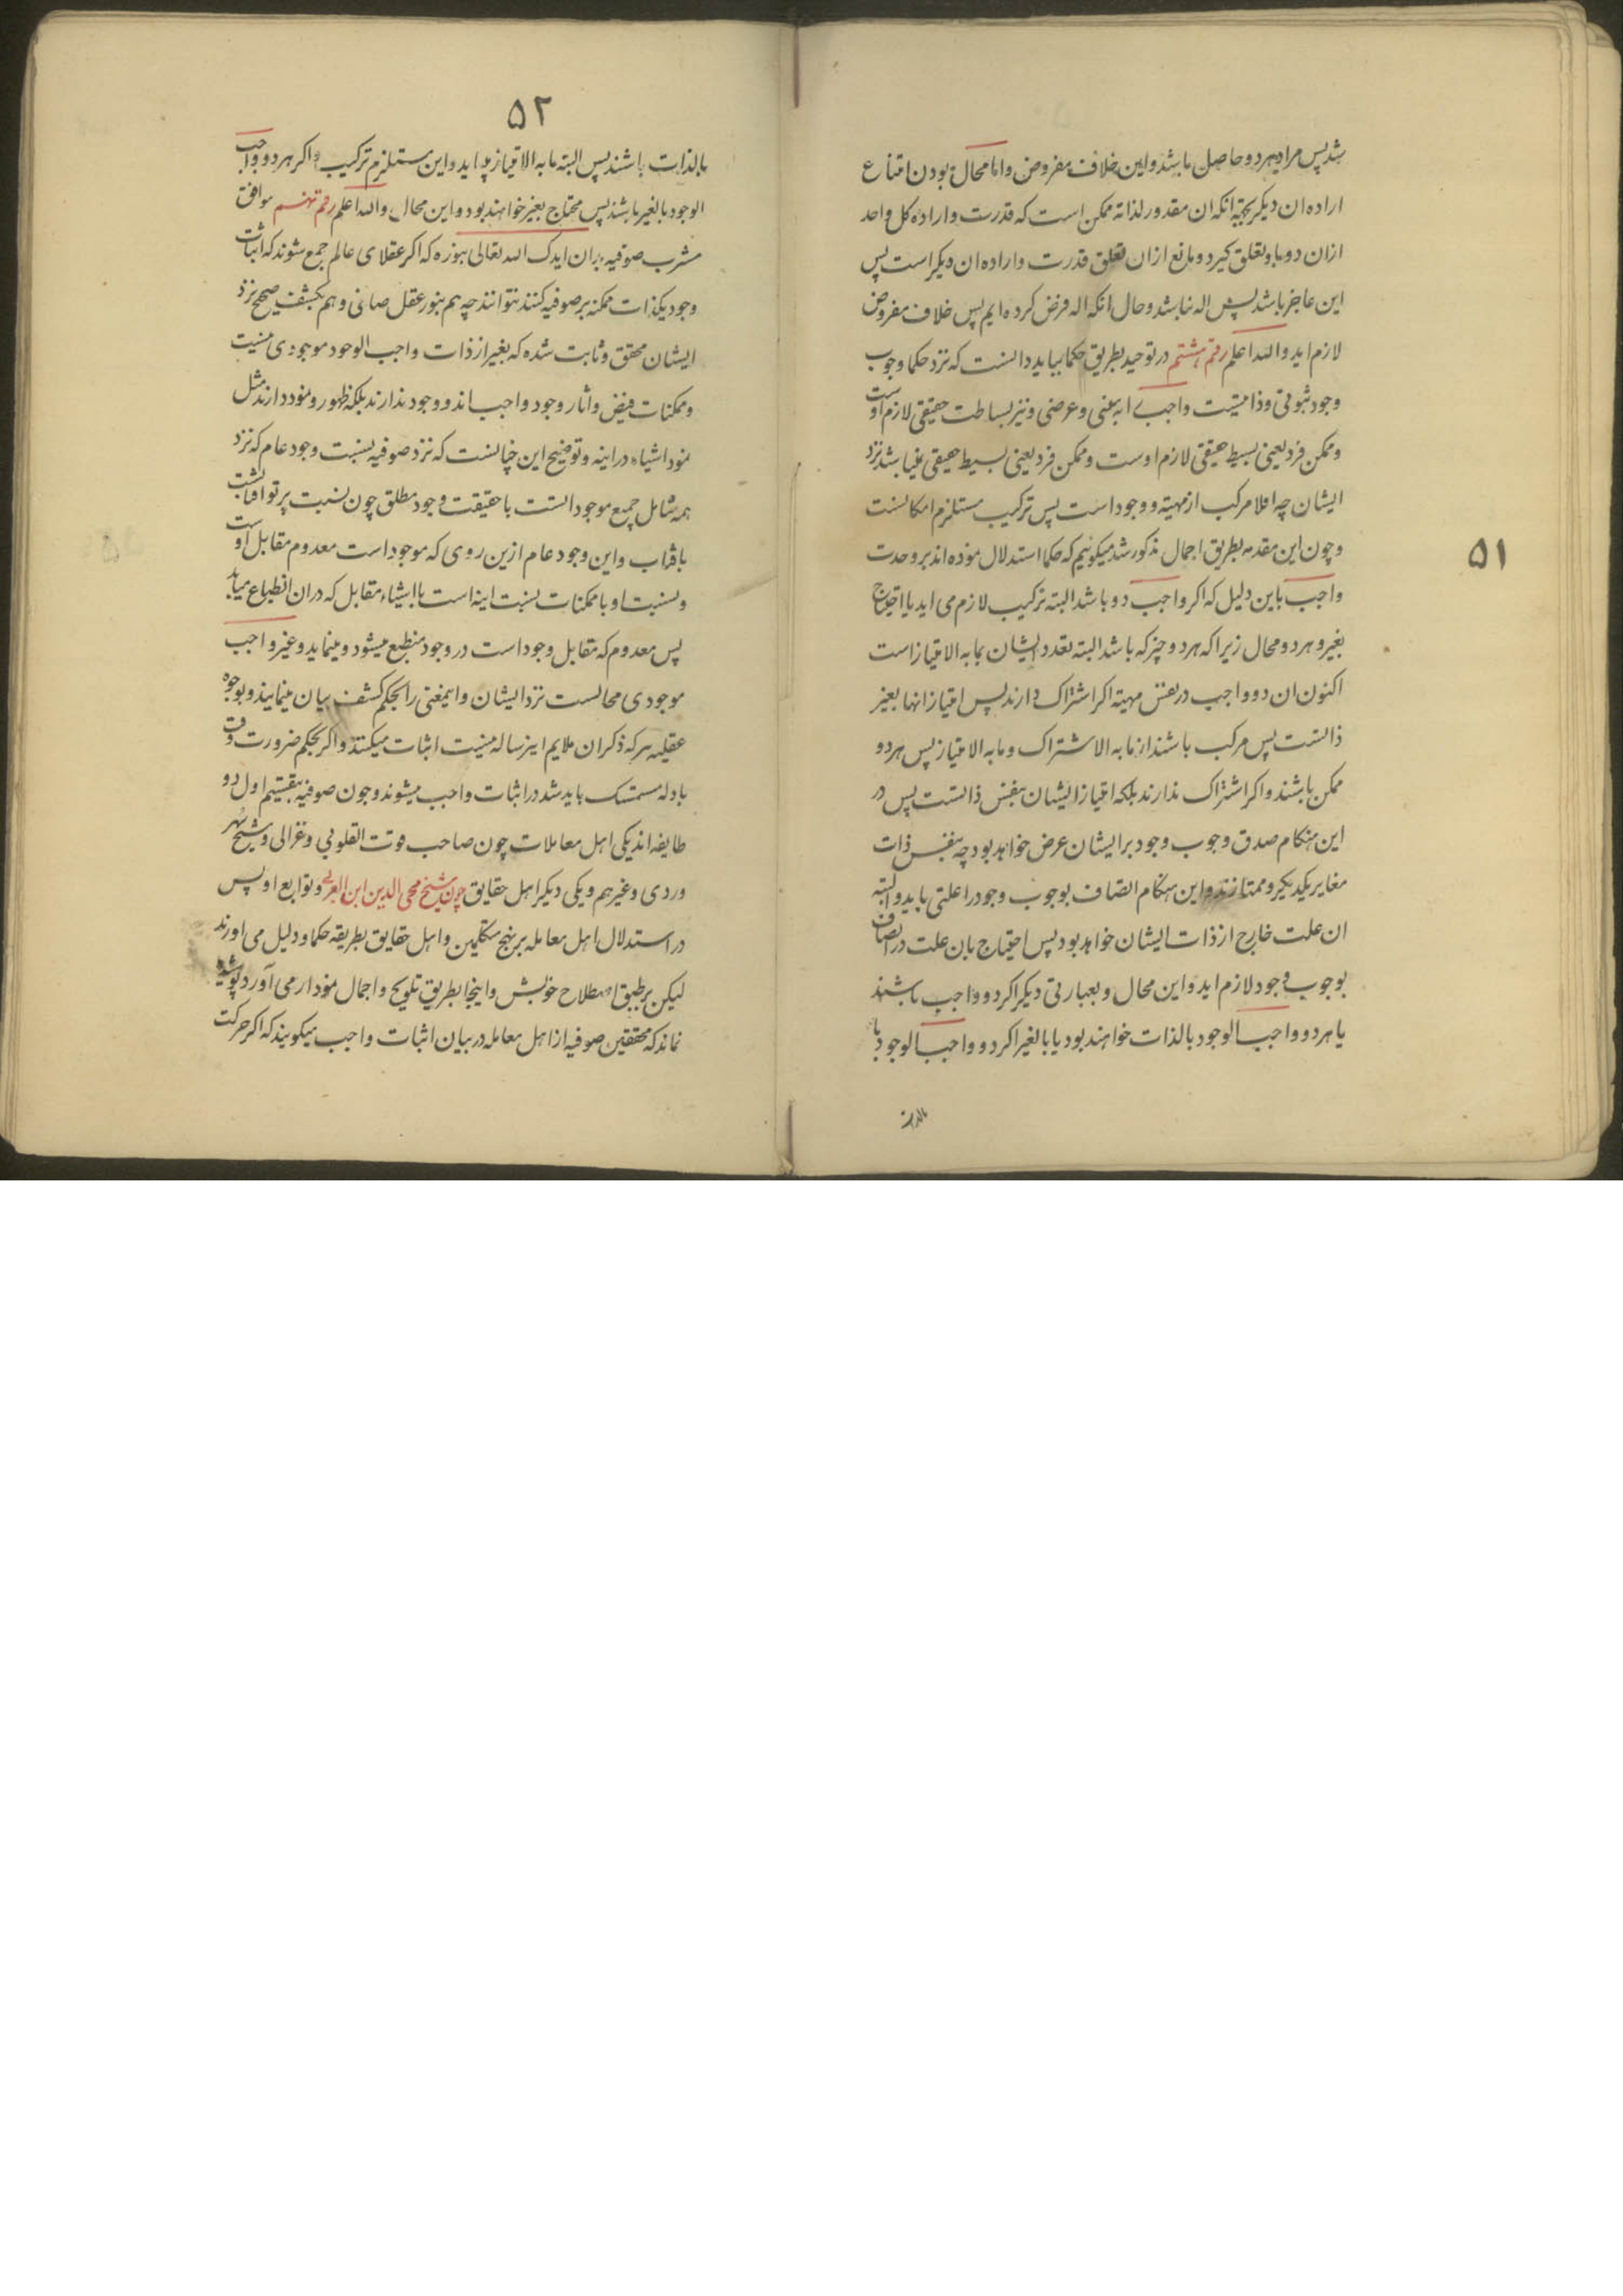 ۵۱
شد پس مراد هردو حاصل باشد و این خلاف مفروض و اما محال بودن امتناع
اراده ان دیکر بجهة انکه ان مقدور لذاته ممکن است که قدرت و اراده کل واحد
ازان دو باو تعلق کیرد و مانع ازان تعلق قدرت و اراده ان دیکر است پس
این عاجز باشد پس اله نباشد و حال انکه اله فرض کرده ایم پس خلاف مفروض
لازم اید والله اعلم رقم هشتم در توحید بطریق حکما بباید دانست که نزد حکما وجوب
وجود ثبوتی و ذاتیست واجب را نه بمعنی و عرضی و نیز بساطت حقیقی لازم اوست
و ممکن فرد یعنی بسیط حقیقی لازم اوست و ممکن فرد یعنی بسیط حقیقی نمیباشد نزد
ایشان چه اقلا مرکب از مهیته و وجود است پس ترکیب مستلزم امکانست
و چون این مقدمه بطریق اجمال مذکور شد میکوئیم که حکما استدلال نموده اند بر وحدت
واجب باین دلیل که اکر واجب دو باشد البته ترکیب لازم می اید یا احتیاج
بغیر و هردو محال زیرا که هر دو چیز که باشد البته تعدد ایشان بمابه الامتیاز است
اکنون ان دو واجب در نفس مهیة اکر اشتراک دارند پس امتیاز انها بغیر
ذاتست پس مرکب باشند از مابه الاشتراک و مابه الامتیاز پس هردو
ممکن باشند و اکر اشتراک ندارند بلکه امتیاز ایشان بنفس ذاتست پس در
این هنکام صدق وجوب وجود بر ایشان عرض خواهد بود چه بنفس ذات
مغایر یکدیکر و ممتازند و این هنکام اتصاف بوجوب وجود را علتی باید و البته
ان علت خارج از ذات ایشان خواهد بود پس احتیاج بان علت در اتصاف
بوجوب وجود لازم اید و این محال و بعبارتی دیکر اکر دو واجب باشند
یا هردو واجب الوجود بالذات خواهند بود یا بالغیر اکر دو واجب الوجود
بالذات
۵۲
بالذات باشند پس البته مابه الامتیاز پید اید و این مستلزم ترکیب و اکر هردو واجب
الوجود بالغیر باشند پس محتاج بغیر خواهند بود و این محال والله اعلم رقم نهم موافق
مشرب صوفیه بدان ایدک الله تعالی بنوره که اکر عقلای عالم جمع شوند که اثبات
وجود یکذات ممکنه بر صوفیه کنند نتوانند چه هم بنور عقل صافی و هم بکشف صحیح نزد
ایشان محقق و ثابت شده که بغیر از ذات واجب الوجود موجودی نیست
و ممکنات فیض و اثار وجود واجب اند و وجود ندارند بلکه ظهور و نمود دارند مثل
نمود اشیاء در اینه و توضیح این چنانست که نزد صوفیه نسبت وجود عام که نزد
همه شامل جمیع موجوداتست با حقیقت وجود مطلق چون نسبت پرتو افتابست
بافتاب و این وجود عام ازین روی که موجود است معدوم مقابل اوست
و نسبت او با ممکنات نسبت اینه است با اشیاء مقابل که دران انطباع میابد
پس معدوم که مقابل وجود است در وجود منطبع میشود و مینماید و غیر واجب
موجودی محالست نزد ایشان و اینمعنی را بحکم کشف بیان مینمایند و بوجوه
عقلیه هر که ذکر ان ملایم اینرساله نیست اثبات میکنند و اکر بحکم ضرورت وقت
بادله متمسک باید شد در اثبات واجب میشوند و چون صوفیه بتقسیم اول دو
طایفه اند یکی اهل معاملات چون صاحب قوت القلوبی و غزالی و شیخ شهر
وردی و غیرهم و یکی دیکر اهل حقایق چون شیخ محی الدین ابن العربی و توابع او پس
در استدلال اهل معامله بر نهج متکلمین و اهل حقایق بطریقه حکما و دلیل می اورند
لیکن بر طبق اصطلاح خویش و اینجا بطریق تلویح و اجمال نمودار می آورد پوشیده
نماند که محققین صوفیه از اهل معامله در بیان اثبات واجب میکویند که اکر حرکت